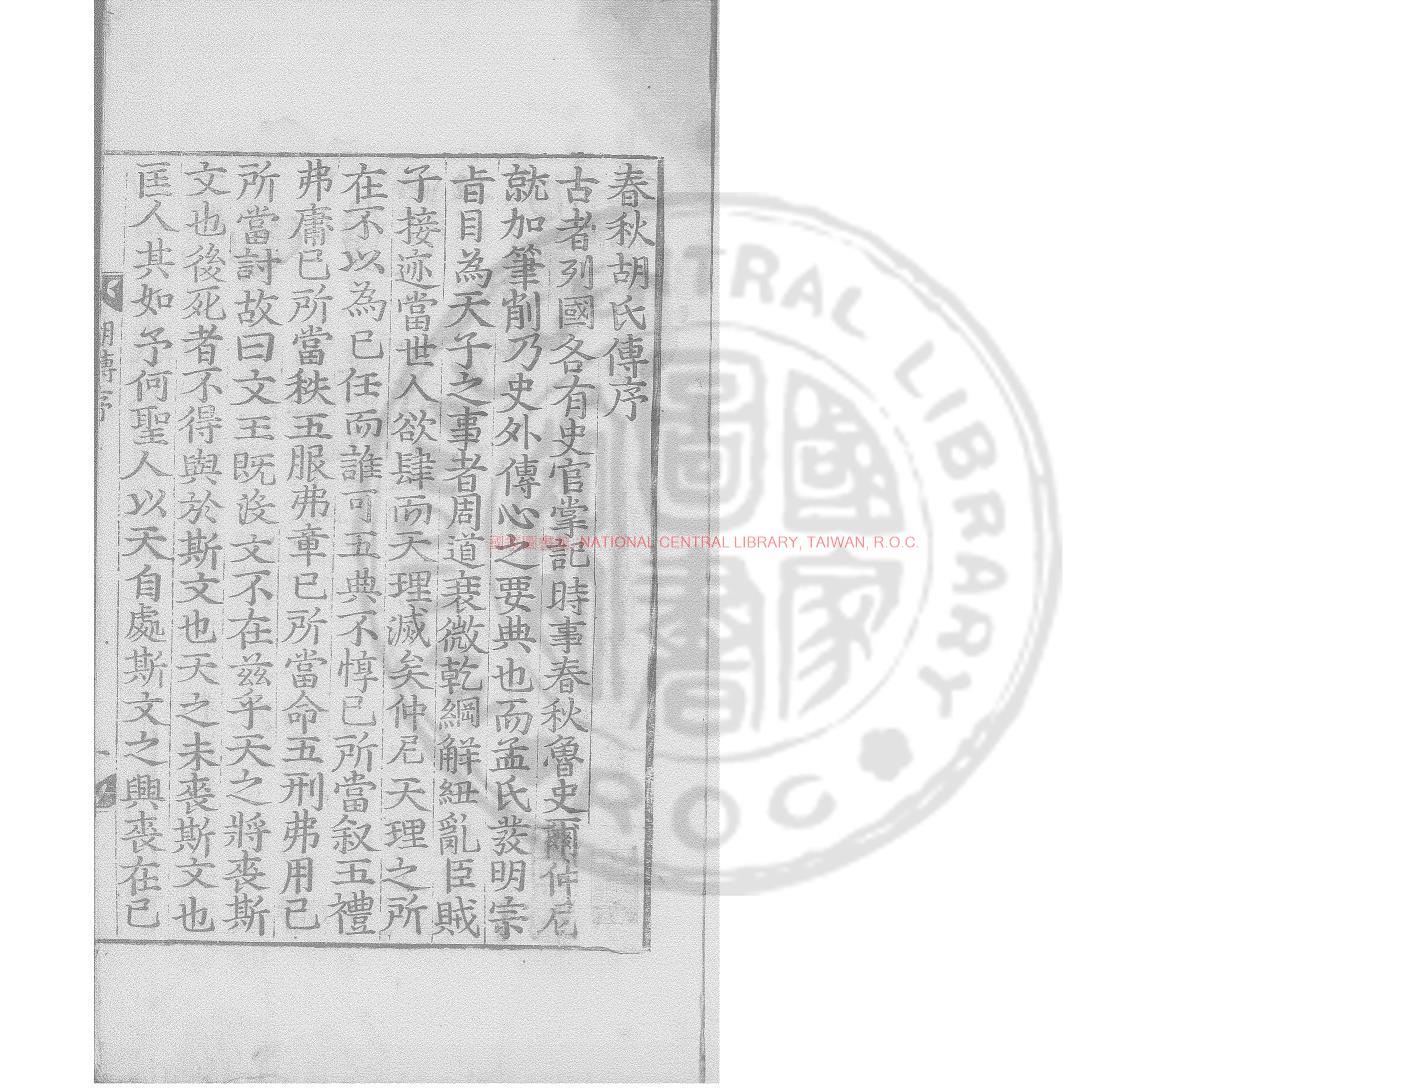 春秋胡氏傳序
古者列國各有史官掌記時事春秋魯史爾仲尼
就加筆削乃史外傳心之要典也而孟氏發明宗
㫖目為天子之事者周道衰微乾綱解紐亂臣賊
子接迹當世人欲肆而天理滅矣仲尼天理之所
在不以為已任而誰可五典不惇已所當叙五禮
弗庸已所當秩五服弗章已所當命五刑弗用已
所當討故曰文王既没文不在兹乎天之將喪斯
文也後死者不得與於斯文也天之未喪斯文也
匡人其如予何聖人以天自處斯文之興喪在已
胡傳序
一
NATIONAL CENTRAL LIBRARY, TAIWAN, R.O.C.
CENTRAL LIBRARY
R.O.C.
國家圖書